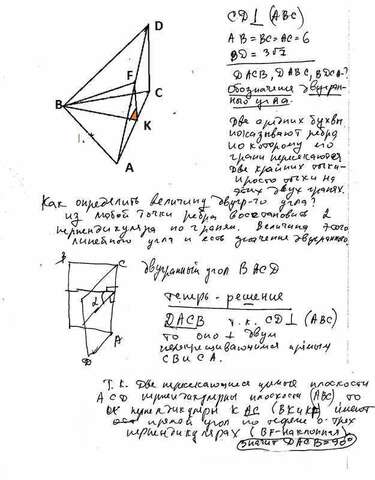 CD⊥(ABC)
AB=BC=AC=6
BD=3√2
DACB, DABC, BDCA-?
Обозначение двугран-
ного угла.
Две средних буквы
показывают ребро
по которому его
грани пересекаются
Две крайних точки-
просто точки на
этих двух гранях.
D
F
B
C
K
A
Как определить величину двугр-го угла?
из любой точки ребра восстановить 2
перпендикуляра по граням. Величина этого
линейного угла и есть значение двугранного.
B
C
двугранный угол BACD
A
D
теперь - решение
DACB т.к. CD⊥(ABC)
то оно ⊥ двум
прямым
CB и CA.
Т.к. Две пересекающиеся прямые плоскости
ACD перпендикулярны плоскости (ABC), то
перпендикуляры к AC (BK и KF) имеют
прямой угол по теореме о трех
перпендикулярах (BF-наклонная)
значит DACB=90°